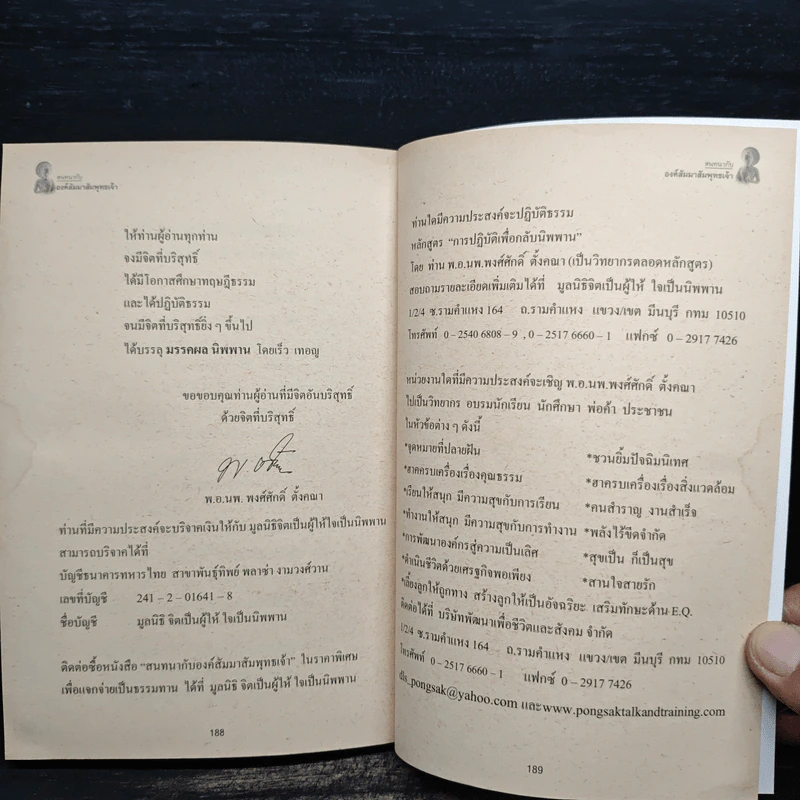 สนทนากับ
องค์สัมมาสัมพุทธเจ้า
ให้ท่านผู้อ่านทุกท่าน
จงมีจิตที่บริสุทธิ์
ได้มีโอกาสศึกษาทฤษฎีธรรม
และได้ปฏิบัติธรรม
จนมีจิตที่บริสุทธิ์ยิ่ง ๆ ขึ้นไป
ได้บรรลุ มรรคผล นิพพาน โดยเร็ว เทอญ
ขอขอบคุณท่านผู้อ่านที่มีจิตอันบริสุทธิ์
ด้วยจิตที่บริสุทธิ์
พ.อ.นพ. พงศ์ศักดิ์ ตั้งคณา
ท่านที่มีความประสงค์จะบริจาคเงินให้กับ มูลนิธิจิตเป็นผู้ให้ใจเป็นนิพพาน
สามารถบริจาคได้ที่
บัญชีธนาคารทหารไทย สาขาพันธุ์ทิพย์ พลาซ่า งามวงศ์วาน
เลขที่บัญชี 241 – 2 – 01641 – 8
ชื่อบัญชี มูลนิธิ จิตเป็นผู้ให้ ใจเป็นนิพพาน
ติดต่อซื้อหนังสือ “สนทนากับองค์สัมมาสัมพุทธเจ้า” ในราคาพิเศษ
เพื่อแจกจ่ายเป็นธรรมทาน ได้ที่ มูลนิธิ จิตเป็นผู้ให้ ใจเป็นนิพพาน
188
สนทนากับ
องค์สัมมาสัมพุทธเจ้า
ท่านใดมีความประสงค์จะปฏิบัติธรรม
หลักสูตร “การปฏิบัติเพื่อกลับนิพพาน”
โดย ท่าน พ.อ.นพ.พงศ์ศักดิ์ ตั้งคณา (เป็นวิทยากรตลอดหลักสูตร)
สอบถามรายละเอียดเพิ่มเติมได้ที่ มูลนิธิจิตเป็นผู้ให้ ใจเป็นนิพพาน
1/2/4 ซ.รามคำแหง 164 ถ.รามคำแหง แขวง/เขต มีนบุรี กทม 10510
โทรศัพท์ 0 – 2540 6808 – 9 , 0 – 2517 6660 – 1 แฟกซ์ 0 – 2917 7426
หน่วยงานใดที่มีความประสงค์จะเชิญ พ.อ.นพ.พงศ์ศักดิ์ ตั้งคณา
ไปเป็นวิทยากร อบรมนักเรียน นักศึกษา พ่อค้า ประชาชน
ในหัวข้อต่าง ๆ ดังนี้
*จุดหมายที่ปลายฝัน *ชวนยิ้มปัจฉิมนิเทศ
*ฮาครบเครื่องเรื่องคุณธรรม *ฮาครบเครื่องเรื่องสิ่งแวดล้อม
*เรียนให้สนุก มีความสุขกับการเรียน *คนสำราญ งานสำเร็จ
*ทำงานให้สนุก มีความสุขกับการทำงาน *พลังไร้ขีดจำกัด
*การพัฒนาองค์กรสู่ความเป็นเลิศ *สุขเป็น ก็เป็นสุข
*ดำเนินชีวิตด้วยเศรษฐกิจพอเพียง *สานใจสายรัก
*เลี้ยงลูกให้ถูกทาง สร้างลูกให้เป็นอัจฉริยะ เสริมทักษะด้าน E.Q.
ติดต่อได้ที่ บริษัทพัฒนาเพื่อชีวิตและสังคม จำกัด
1/2/4 ซ.รามคำแหง 164 ถ.รามคำแหง แขวง/เขต มีนบุรี กทม 10510
โทรศัพท์ 0 – 2517 6660 – 1 แฟกซ์ 0 – 2917 7426
และwww.pongsaktalkandtraining.com
189